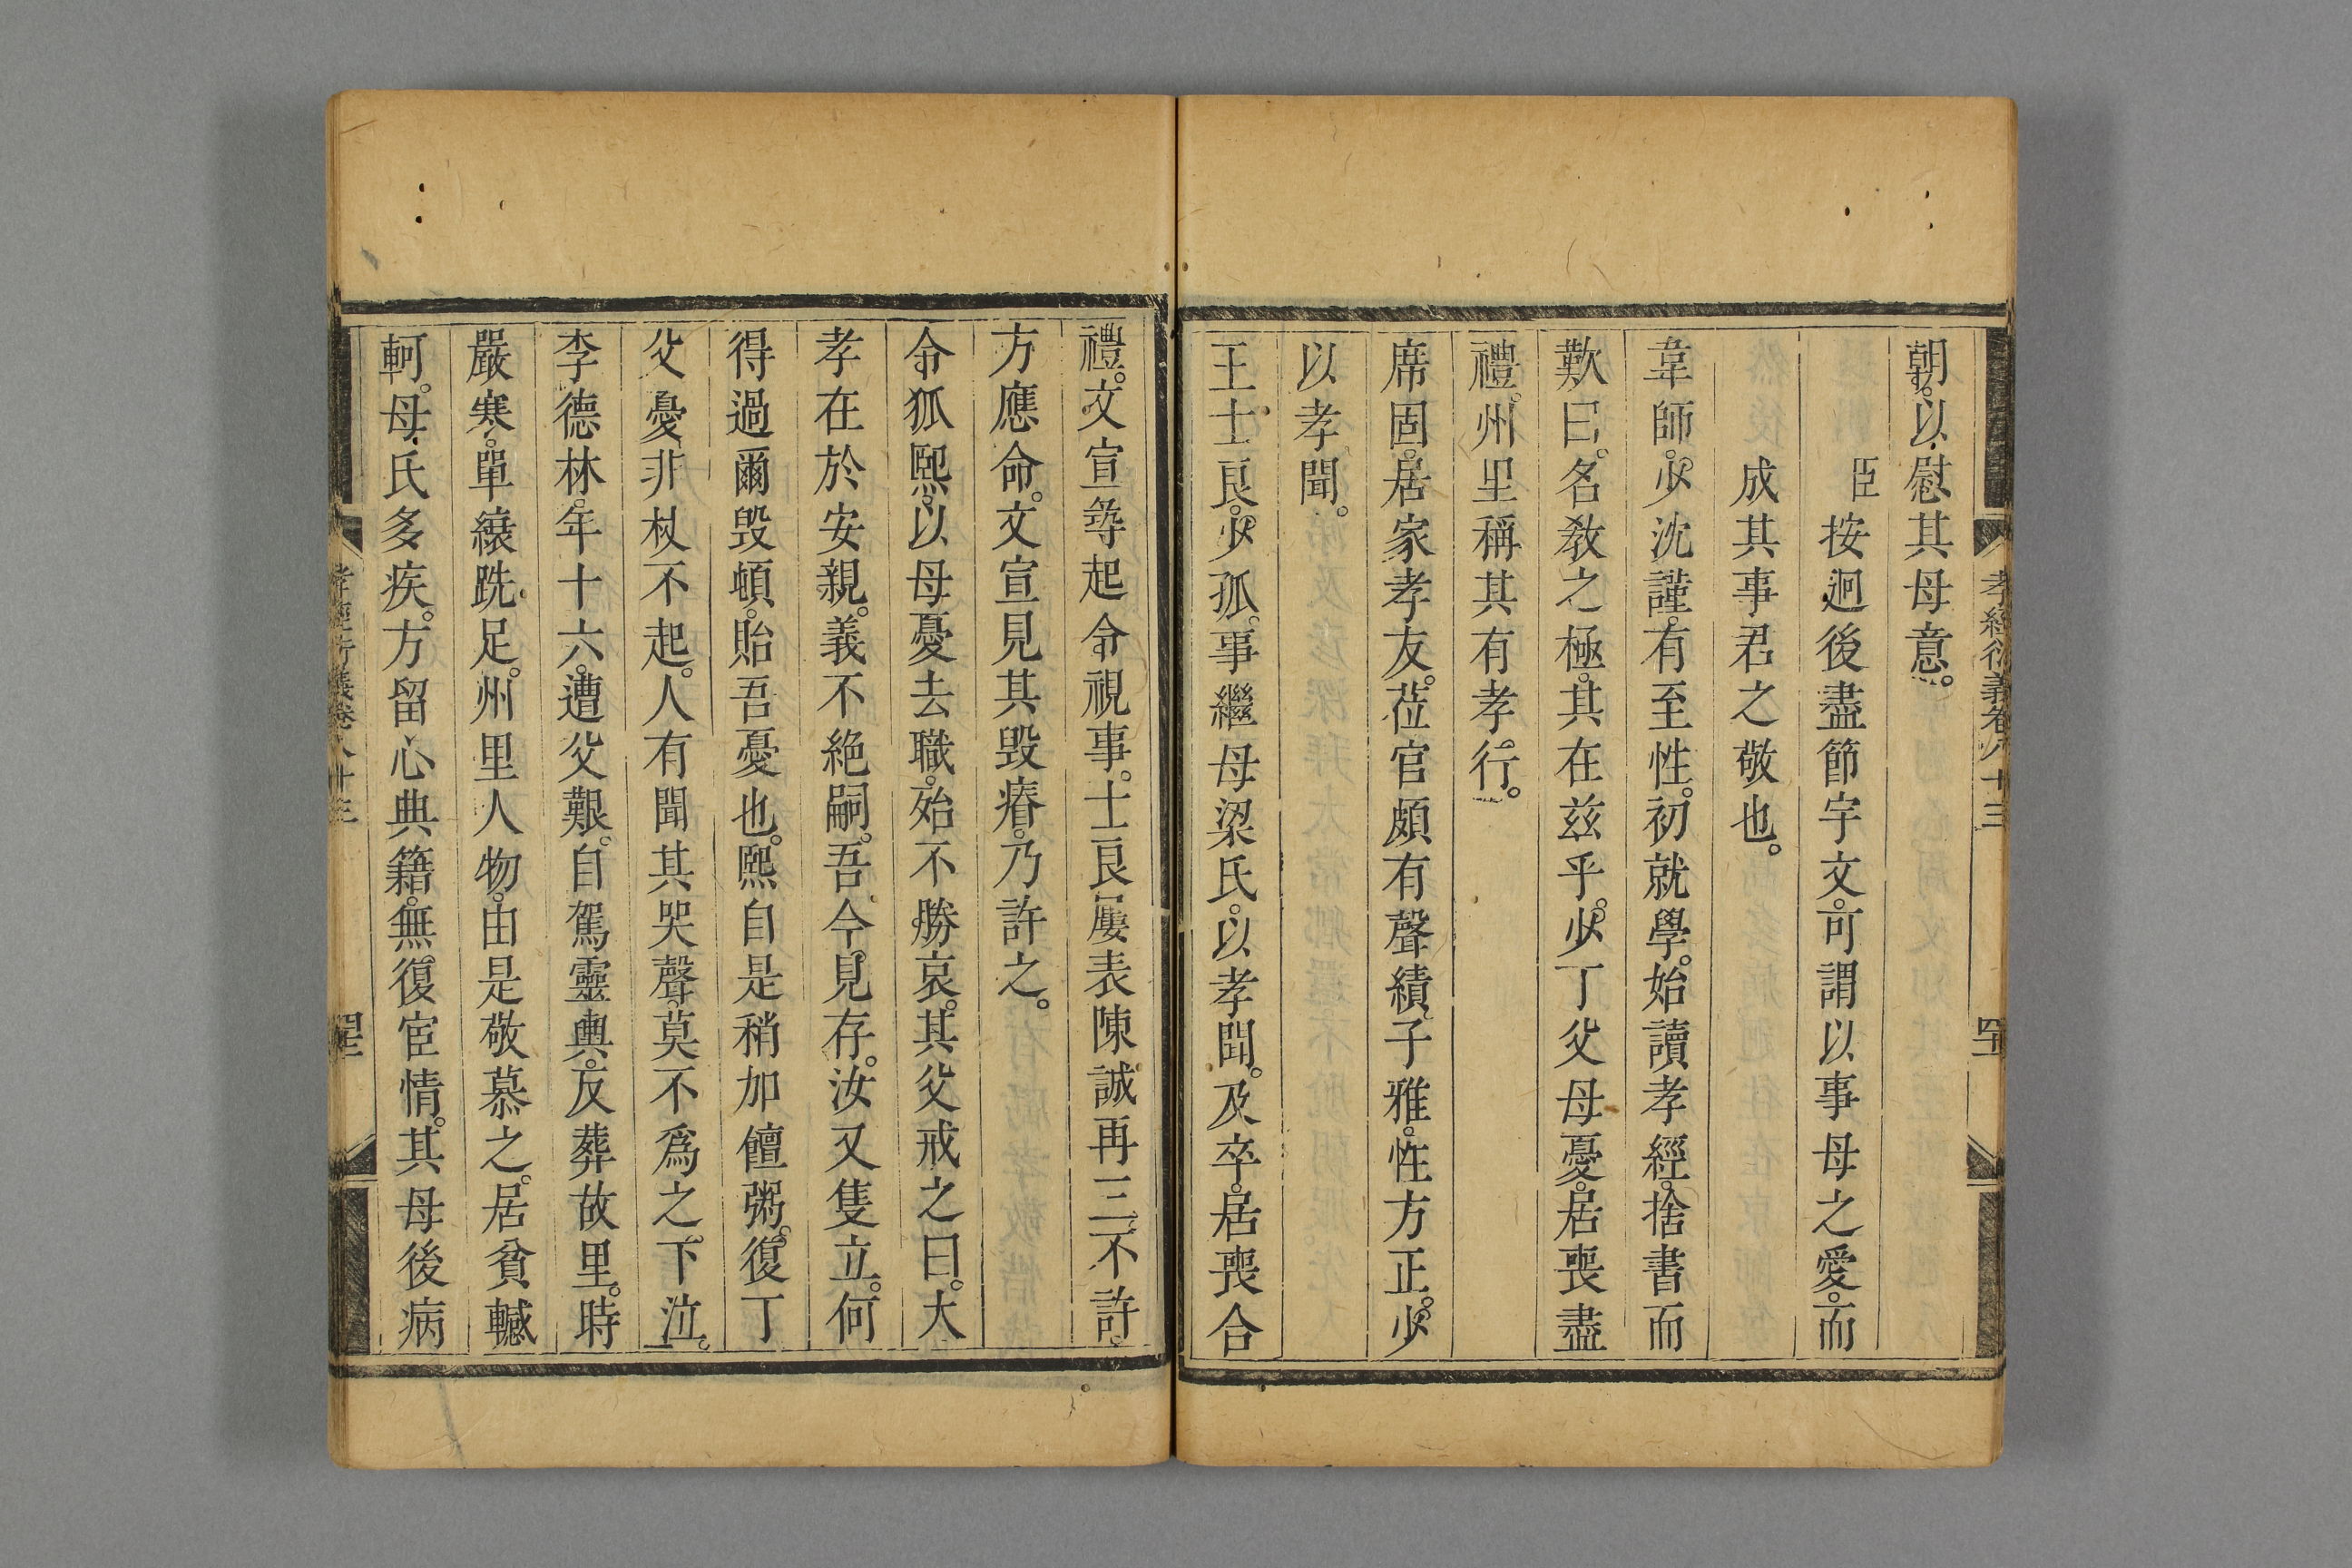 孝經衍義卷八十三
朝。以慰其母意。
臣按迥後盡節宇文。可謂以事母之愛。而
成其事君之敬也。
韋師。少沈謹。有至性。初就學。始讀孝經。捨書而
歎曰。名敎之極。其在茲乎。少丁父母憂。居喪盡
禮。州里稱其有孝行。
席固。居家孝友。莅官頗有聲績。子雅。性方正。少
以孝聞。
王士良。少孤。事繼母梁氏。以孝聞。及卒。居喪合
禮。文宣尋起令視事。士良屢表陳誠再三。不許。
方應命。文宣見其毀瘠。乃許之。
令狐熙。以母憂去職。殆不勝哀。其父戒之曰。大
孝在於安親。義不絶嗣。吾今見存。汝又隻立。何
得過爾毀頓。貽吾憂也。熙自是稍加饘粥。復丁
父憂非杖不起。人有聞其哭聲。莫不爲之下泣。
李德林。年十六。遭父艱。自駕靈輿。反葬故里。時
嚴寒。單縗跣足。州里人物。由是敬慕之。居貧轗
軻。母氏多疾。方留心典籍。無復宦情。其母後病
孝經衍義卷八十三